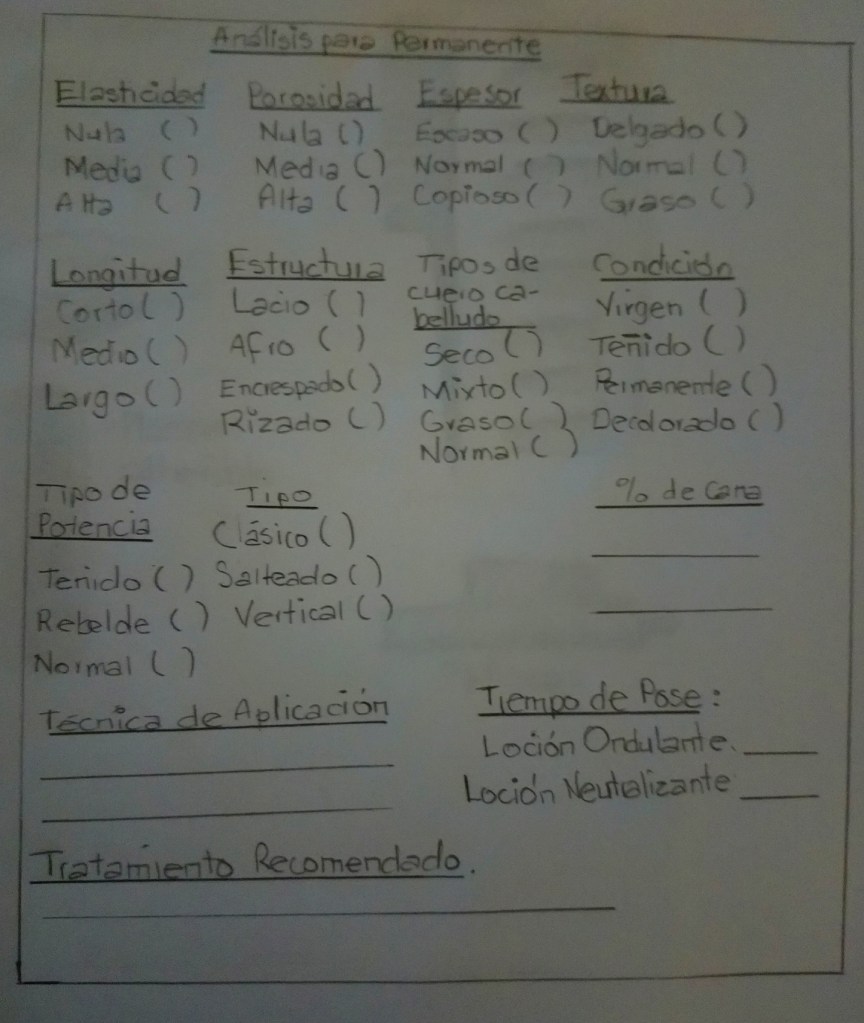 Análisis para Permanente
Elasticidad Porosidad Espesor Textura
Nula ( ) Nula ( ) Escaso ( ) Delgado ( )
Media ( ) Media ( ) Normal ( ) Normal ( )
Alta ( ) Alta ( ) Copioso ( ) Graso ( )
Longitud Estructura Tipos de Condición
Corto ( ) Lacio ( ) cuero ca- Virgen ( )
Medio ( ) Afro ( ) belludo Teñido ( )
Largo ( ) Encrespado ( ) Seco ( ) Permanente ( )
Rizado ( ) Mixto ( ) Decolorado ( )
Graso ( )
Normal ( )
Tipo de Tipo % de Cana
Potencia Clásico ( )
Teñido ( ) Salteado ( )
Rebelde ( ) Vertical ( )
Normal ( )
Técnica de Aplicación
Tiempo de Pose :
Loción Ondulante. ____
Loción Neutralizante ____
Tratamiento Recomendado.